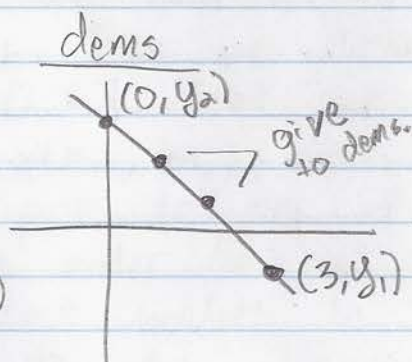 dems
(0, y₂)
give
to dems.
(3, y₁)
)